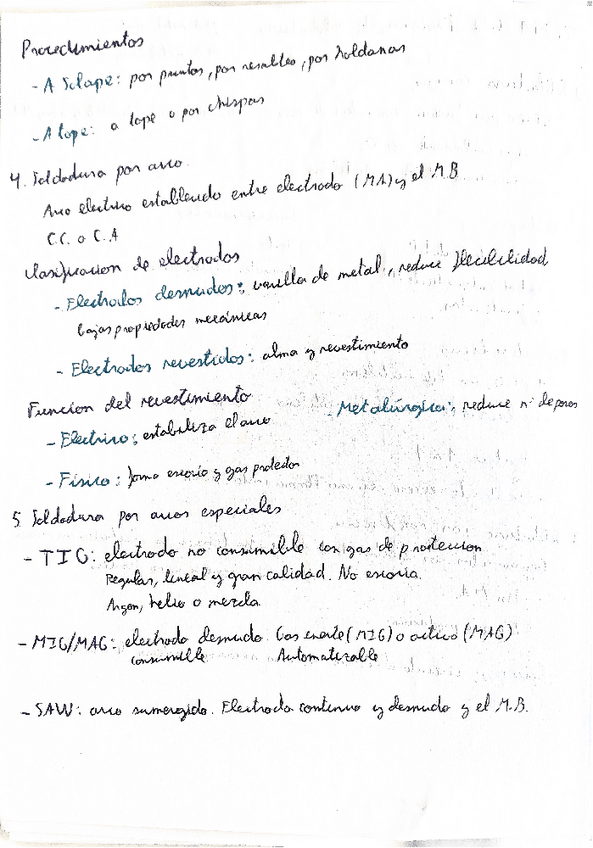 Procedimientos
- A Solape: por puntos, por resaltes, por roldanas
- A tope: a tope o por chispas
4. Soldadura por arco.
Arco electrico establecido entre electrodo (MA) y el M.B
C.C. o C.A
Clasificacion de electrodos
- Electrodos desnudos: varilla de metal, reduce flexibilidad
bajas propiedades mecánicas
- Electrodos revestidos: alma y revestimiento
Funcion del revestimiento
- Metalúrgica: reduce nº de poros
- Electrico: estabiliza el arco
- Físico: forma escoria y gas protector
5. Soldadura por arcos especiales
- TIG: electrodo no consumible con gas de proteccion
Regular, lineal y gran calidad. No escoria.
Argon, helio o mezcla.
- MIG/MAG: electrodo desnudo. Gas inerte (MIG) o activo (MAG)
consumible Automatizable
- SAW: arco sumergido. Electrodo continuo y desnudo y el M.B.